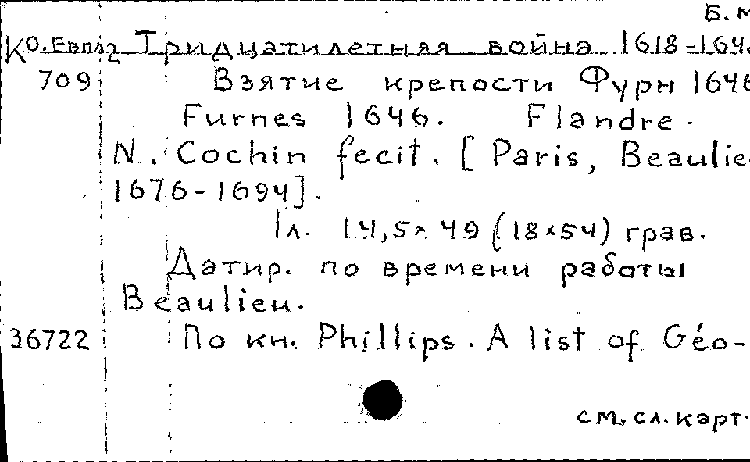 Б.м
Ко.Евп 12 Тридцатилетняя война 1618-164
709 Взятие крепости Фурн 1646
Furnes 1646. Flandre.
N. Cochin fecit. [Paris, Beaulie
1676-1694].
1л. 14,5×49 (18×54) грав.
Датир. по времени работы
Beaulieu.
36722 По кн. Phillips. A list of Géo-
см. сл. карт.